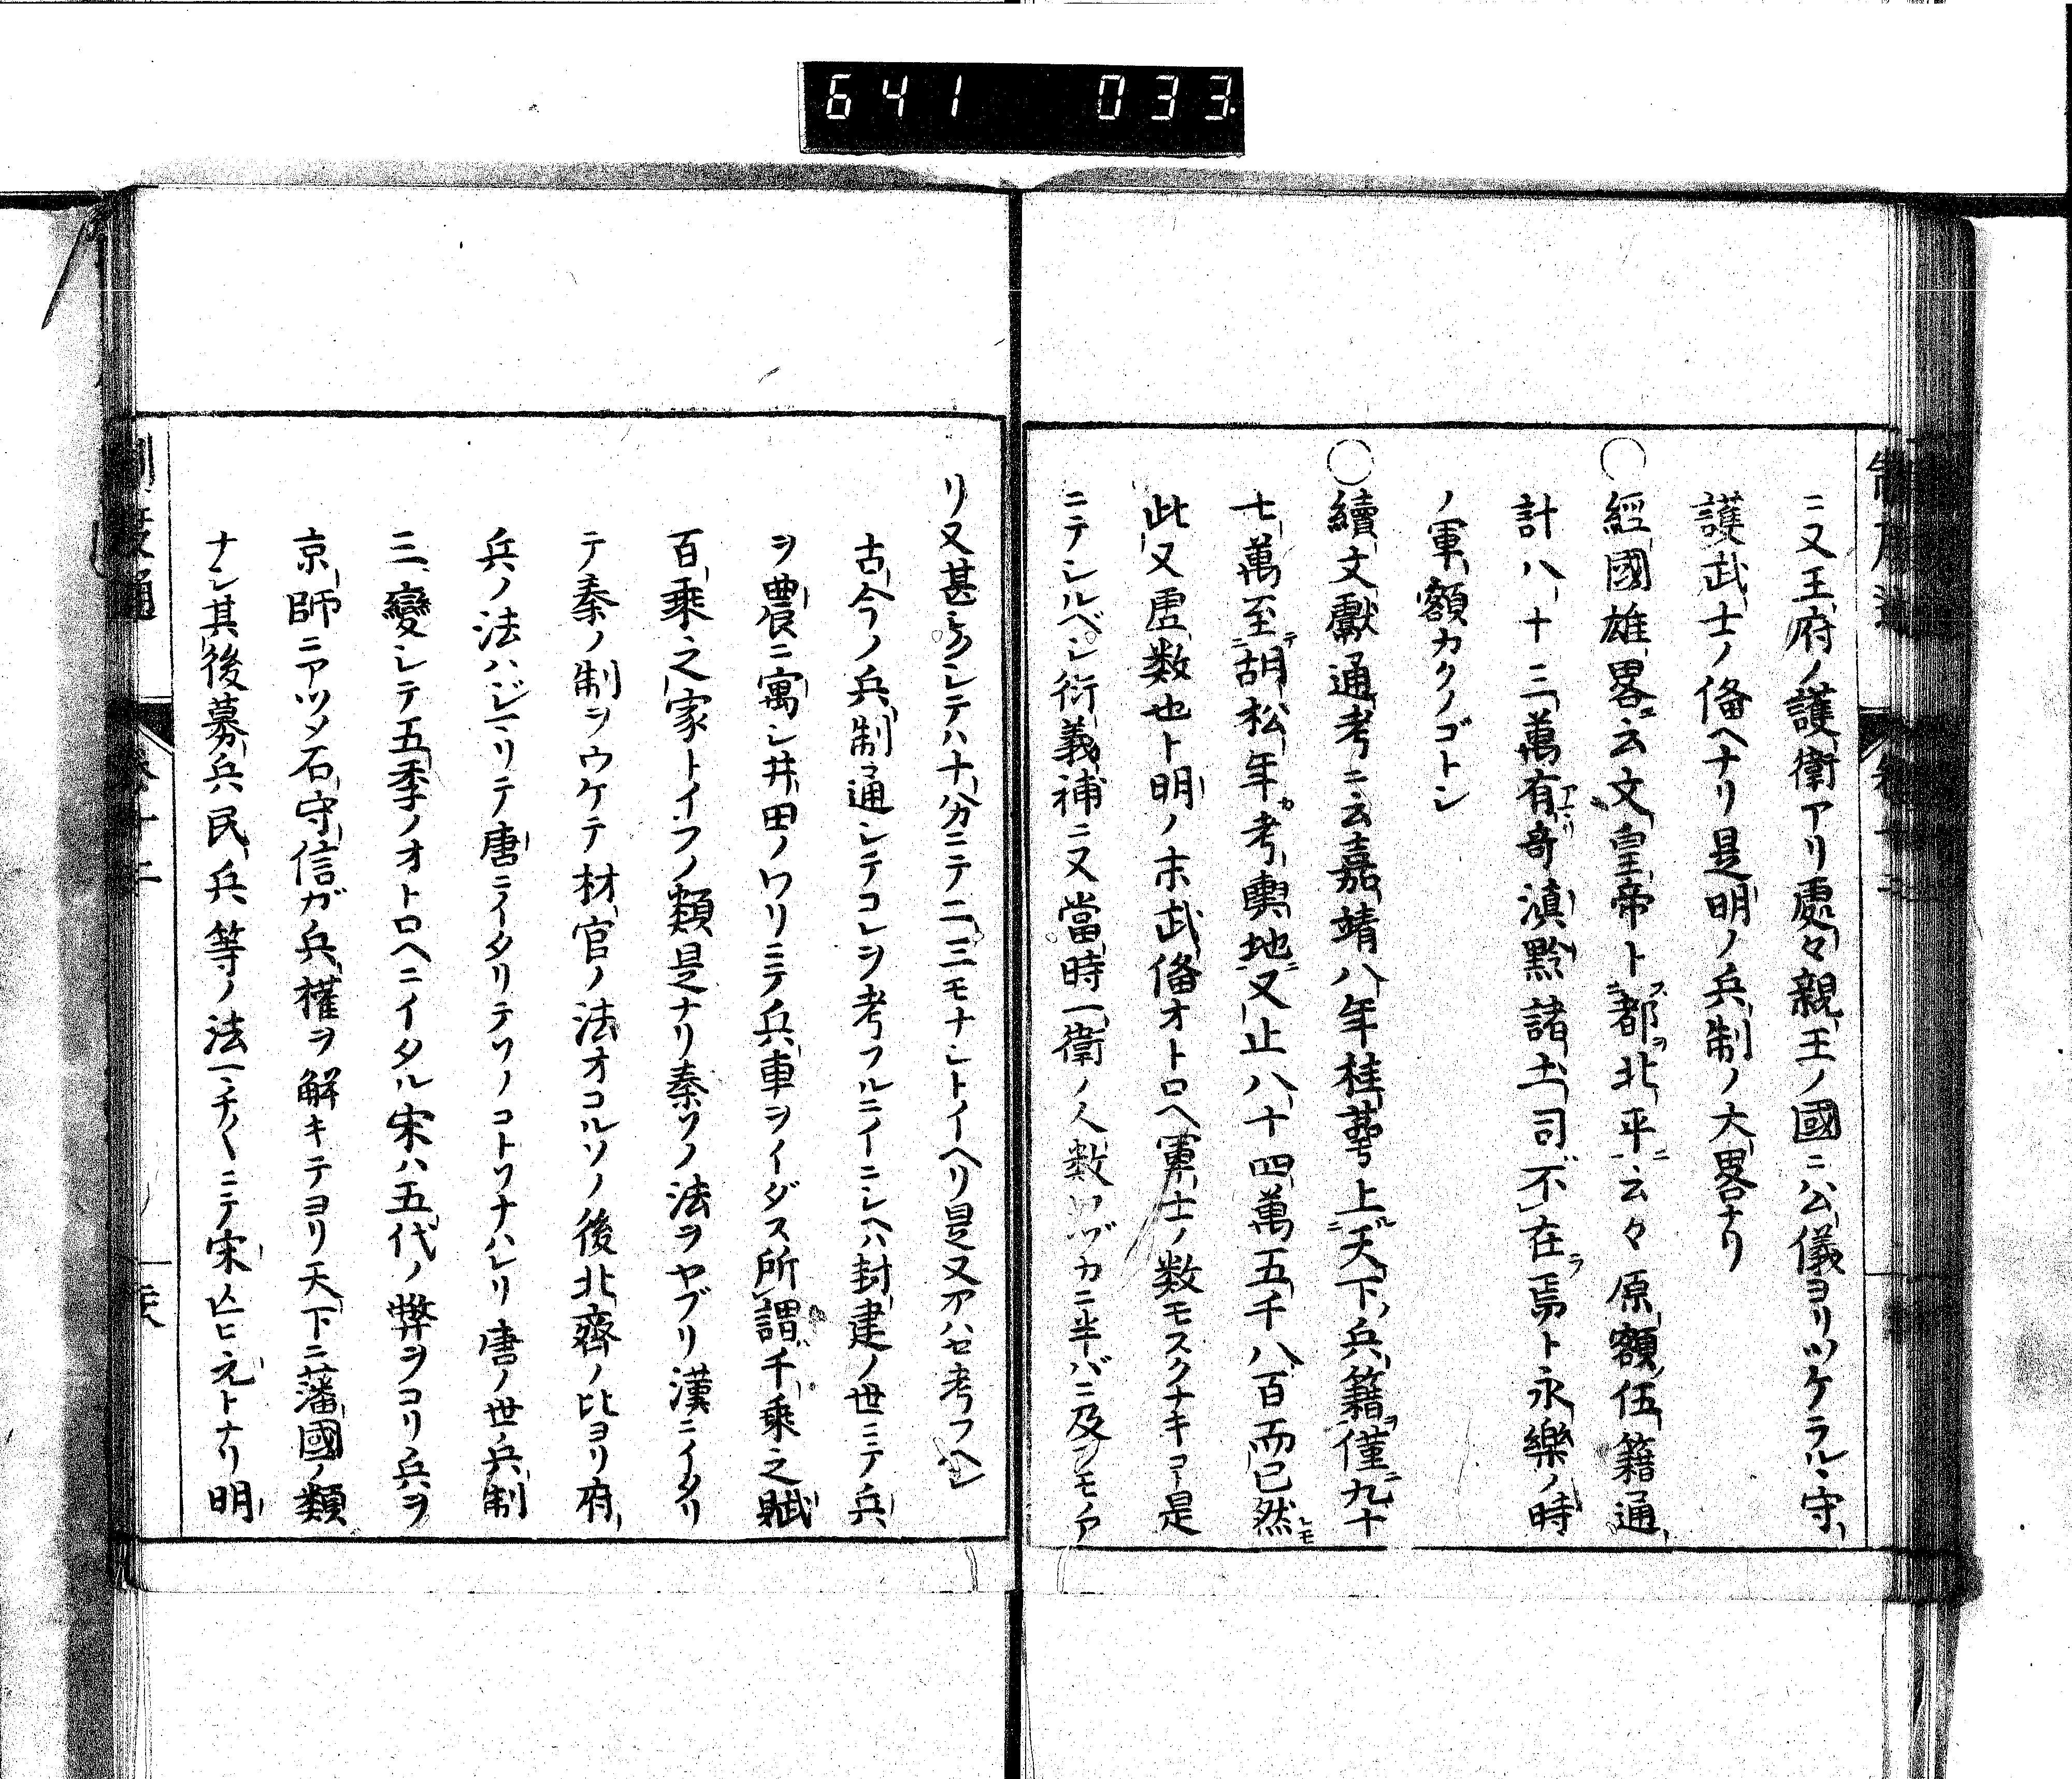 641 033
ニ又王府ノ護衛アリ處々親王ノ國ニ公儀ヨリツケラルヽ守
護武士ノ俻ヘナリ是明ノ兵制ノ大畧ナリ
○經國雄畧ニ云文皇帝ト都北平云々原額伍籍通
計八十三萬有竒滇黔諸土司不在焉ト永樂ノ時
ノ軍額カクノゴトシ
○續文獻通考ニ云嘉靖八年桂萼上天下兵籍僅九十
七萬至胡松年考輿地又止八十四萬五千八百而已然
此又虚数也ト明ノ末武俻オトロヘ軍士ノ数モスクナキコー是
ニテシルベシ衍義補ニ又當時一衛ノ人数ワヅカニ半バニ及フモノア
リ又甚シテハ十分ニテ二三モナシトイヘリ是又アハセ考フヘシ
古今ノ兵制通シテコレヲ考フルニイニシヘハ封建ノ世ニテ兵
ヲ農ニ寓シ井田ノワリニテ兵車ヲイダス所謂千乗之賦
百乗之家トイフノ類是ナリ秦ソノ法ヲヤブリ漢ニイタリ
テ秦ノ制ヲウケテ材官ノ法オコルソノ後北齊ノ比ヨリ府
兵ノ法ハジマリテ唐ニイタリテソノコトソナハレリ唐ノ世ノ兵制
三變シテ五季ノオトロヘニイタル宋ハ五代ノ弊ヲコリ兵ヲ
京師ニアツメ石守信ガ兵權ヲ解キテヨリ天下ニ藩國ノ類
ナシ其後募兵民兵等ノ法一チ〱ニテ宋亡ヒ元トナリ明
制度通 卷十二